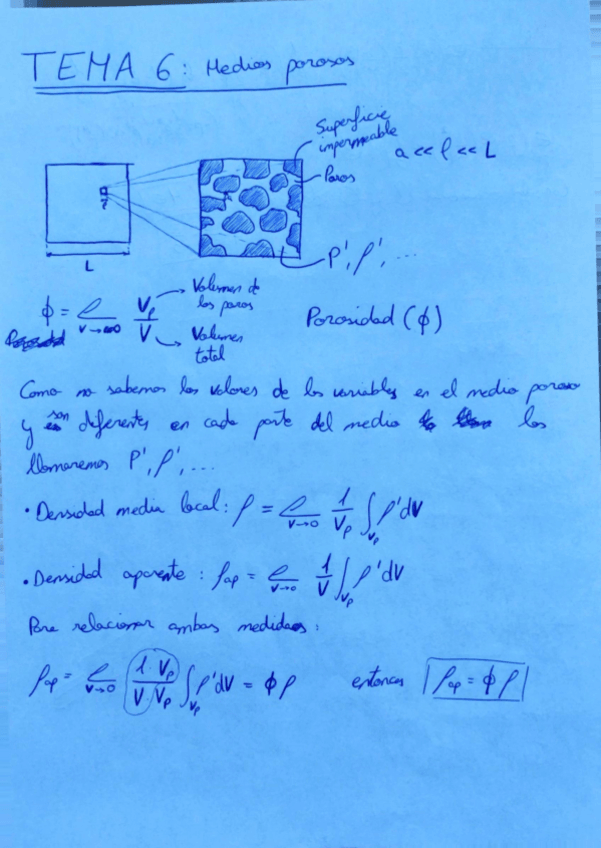 TEMA 6: Medios porosos
Superficie
impermeable
a << l << L
Poros
L
P', ρ', ...
ϕ = l V→0 Vp/V
Volumen de
los poros
Volumen
total
Porosidad (ϕ)
Como no sabemos los valores de las variables en el medio poroso
y son diferentes en cada parte del medio los
llamaremos P', ρ', ...
· Densidad media local: ρ = l V→0 1/Vp ∫Vp ρ'dV
· Densidad aparente: ρap = l V→0 1/V ∫Vp ρ'dV
Para relacionar ambas medidas:
ρap = l V→0 (1·Vp)/(V·Vp) ∫Vp ρ'dV = ϕ ρ entonces ρap = ϕ ρ